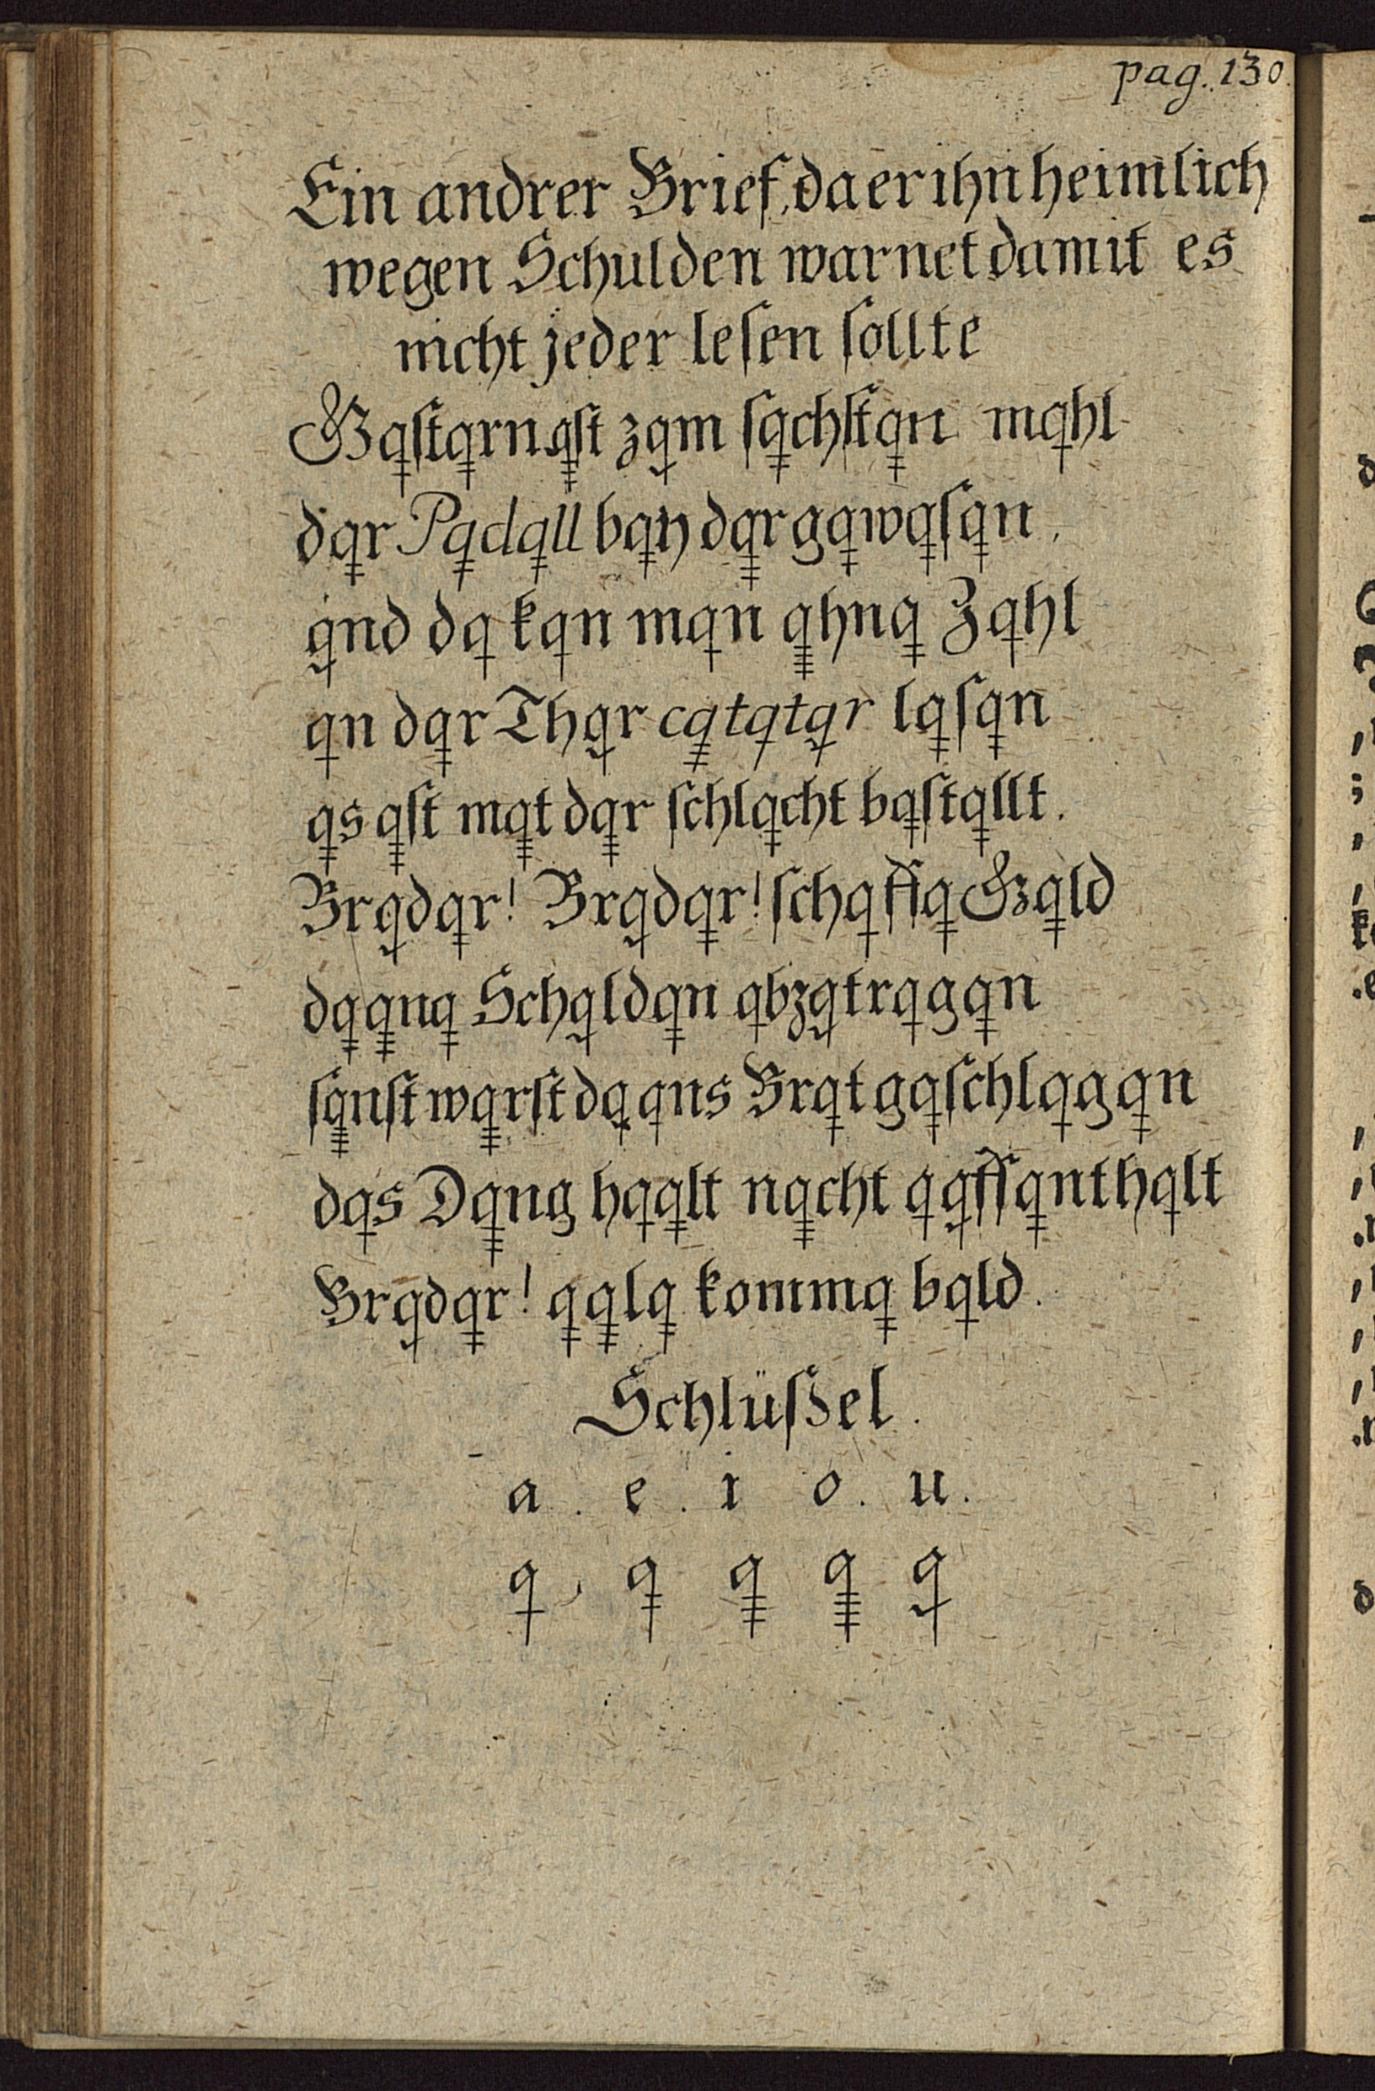 pag. 130.
Ein andrer Brief, da er ihn heimlich
wegen Schulden warnet damit es
nicht jeder leſen ſollte
Gqſtqrn qſt zqm ſqchſtqn mqhl
dqr Pqdqll bqy dqr gqwqſqn.
qnd dq kqn mqn qhnq Zqhl
qn dqr Thqr cqtqtqr lqſqn
qs qſt mqt dqr ſchlqcht bqſtqllt.
Brqdqr! Brqdqr! ſchqffq Gqld
dqqnq Schqldqn qbzqtrqgqn
ſqnſt wqrſt dq qns Brqt gqſchlqgqn
dqs Dqng hqqlt nqcht qqffqnthqlt
Brqdqr! qqlq kommq bqld.
Schlüſsel.
a. e. i o. u.
q q q q q